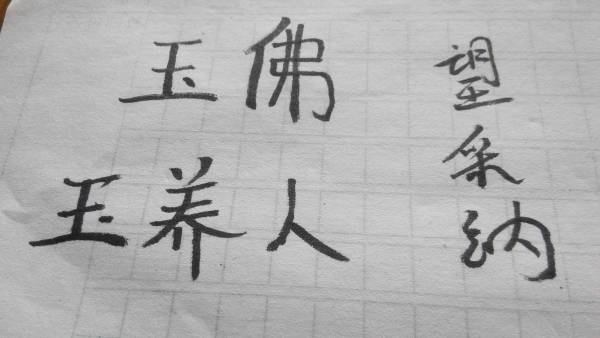 玉佛
玉养人
望采纳